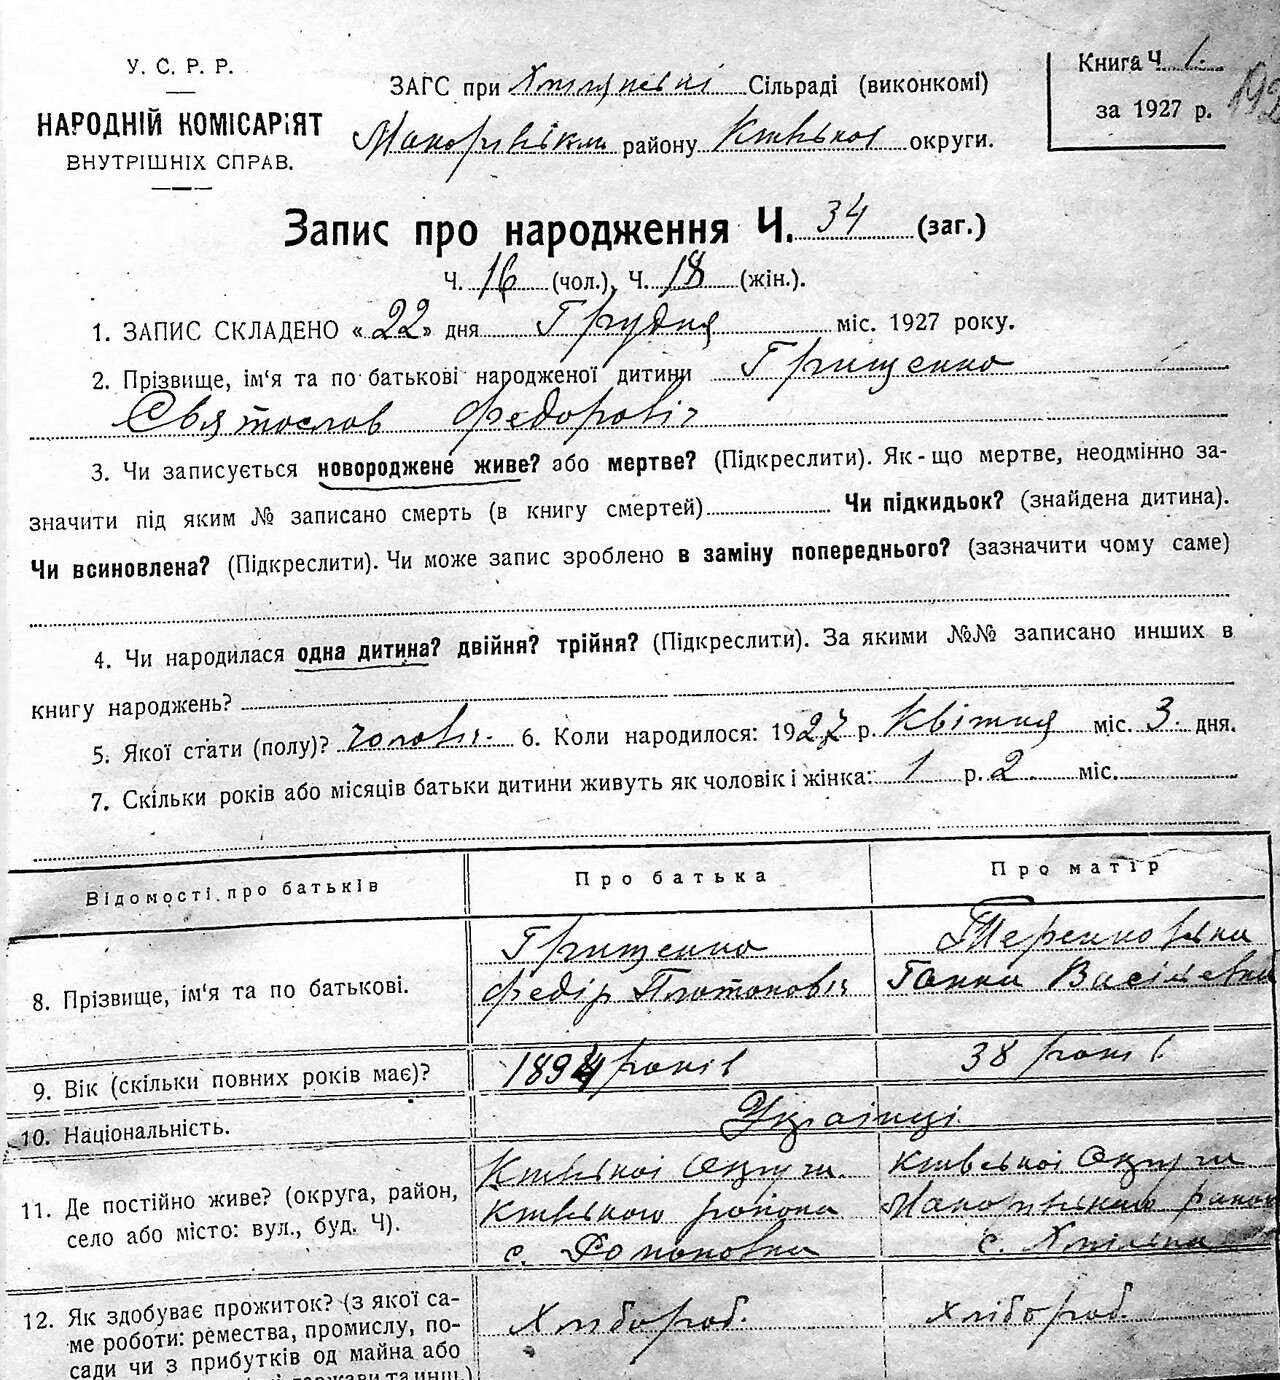 У. С. Р. Р.
НАРОДНІЙ КОМІСАРІЯТ
ВНУТРІШНІХ СПРАВ.
ЗАГС при Сільраді (виконкомі)
Макарівськ. району Київської округи.
Книга Ч. 1.
за 1927 р.
Запис про народження Ч. 34 (заг.)
Ч. 16 (чол.), Ч. 18 (жін.).
1. ЗАПИС СКЛАДЕНО «22» дня Грудня міс. 1927 року.
2. Прізвище, ім'я та по батькові народженої дитини Грищенко
Святослав Федоровіч
3. Чи записується новороджене живе? або мертве? (Підкреслити). Як-що мертве, неодмінно за-
значити під яким № записано смерть (в книгу смертей) Чи підкидьок? (знайдена дитина).
Чи всиновлена? (Підкреслити). Чи може запис зроблено в заміну попереднього? (зазначити чому саме)
4. Чи народилася одна дитина? двійня? трійня? (Підкреслити). За якими №№ записано инших в
книгу народжень?
5. Якої стати (полу)? чоловіч. 6. Коли народилося: 1927 р. Квітня міс. 3. дня.
7. Скільки років або місяців батьки дитини живуть як чоловік і жінка: 1 р. 2 міс.
Відомості про батьків
Про батька
Про матір
8. Прізвище, ім'я та по батькові.
Грищенко
Федір Платоновіч
Ганна Василевна
9. Вік (скільки повних років має)?
1894 років
38 років
10. Національність.
Українці
11. Де постійно живе? (округа, район,
село або місто: вул., буд. Ч).
Київської Округи
Київського района
с.
Київської Округи
Макарівського район
с.
12. Як здобуває прожиток? (з якої са-
ме роботи: ремества, промислу, по-
сади чи з прибутків од майна або
держави та инш.)
Хлібороб.
хлібороб.